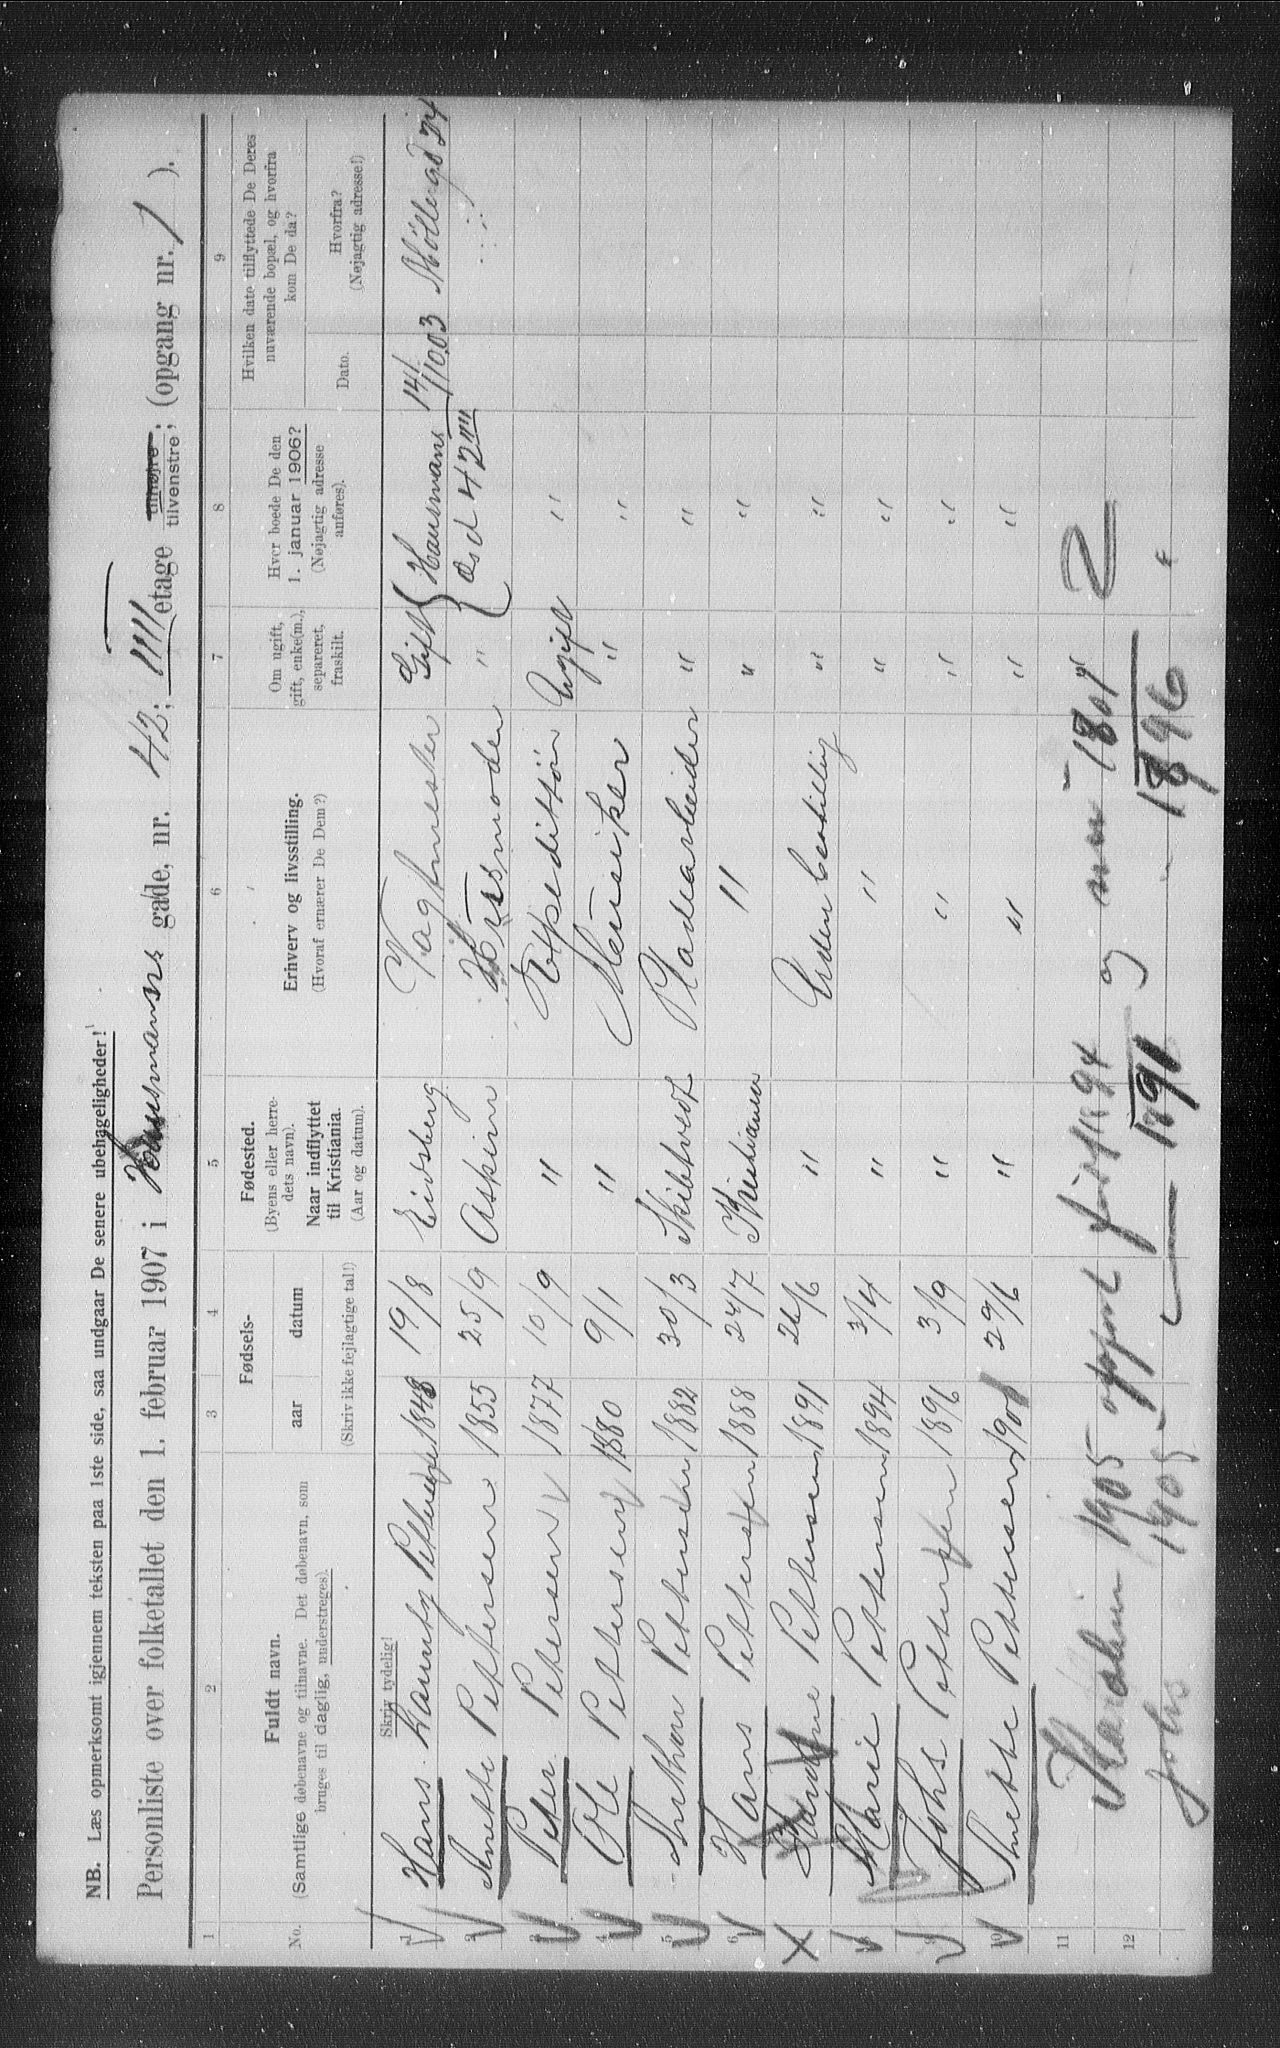 NB. Læs opmerksomt igjennem teksten paa 1ste side, saa undgaar De senere ubehageligheder!
Personliste over folketallet den 1. februar 1907 i Hausmanns gade, nr. 42; IIII etage tilhøire tilvenstre; (opgang nr. 1 ).
1 2 3 4 5 6 7 8 9
No.
Fuldt navn.
(Samtlige døbenavne og tilnavne. Det døbenavn, som
bruges til daglig, understreges).
Skriv tydelig!
Fødsels-
aar datum
(Skriv ikke fejlagtige tal!)
Fødested.
(Byens eller herre-
dets navn).
Naar indflyttet
til Kristiania.
(Aar og datum).
Erhverv og livsstilling.
(Hvoraf ernærer De Dem?)
Om ugift,
gift, enke(m.),
separeret,
fraskilt.
Hvor boede De den
1. januar 1906?
(Nøjagtig adresse
anføres).
Hvilken date tilflyttede De Deres
nuværende bopæl, og hvorfra
kom De da?
Dato.
Hvorfra?
(Nøjagtig adresse!)
1 Hans Lauritz Pettersen 1848 19/8 Eidsberg Vagtmester Gift { Hausmans 14/11 003 Møllergd 24
2 Anette Pettersen 1855 25/9 Askim Husmoder " gd 42 IIII
3 Peter Petersen 1877 10/9 " Expeditør Ugift "
4 Ole Pettersen 1880 9/1 " Musiker " "
5 Arthur Pettersen 1882 30/3 Skibtvedt Pladearbeider " "
6 Hans Pettersen 1888 24/7 Kristiania " " "
Pettersen 1891 26/6 " Uden bestilling " "
8 Marie Pettersen 1894 3/4 " " " "
9 Johs Pettersen 1896 3/9 " " " "
10 Anette Pettersen 1901 29/6 " " " "
11
12
1905 opført født 1894 og nu 1801 2
Johs 1905 - 1891 - 1896